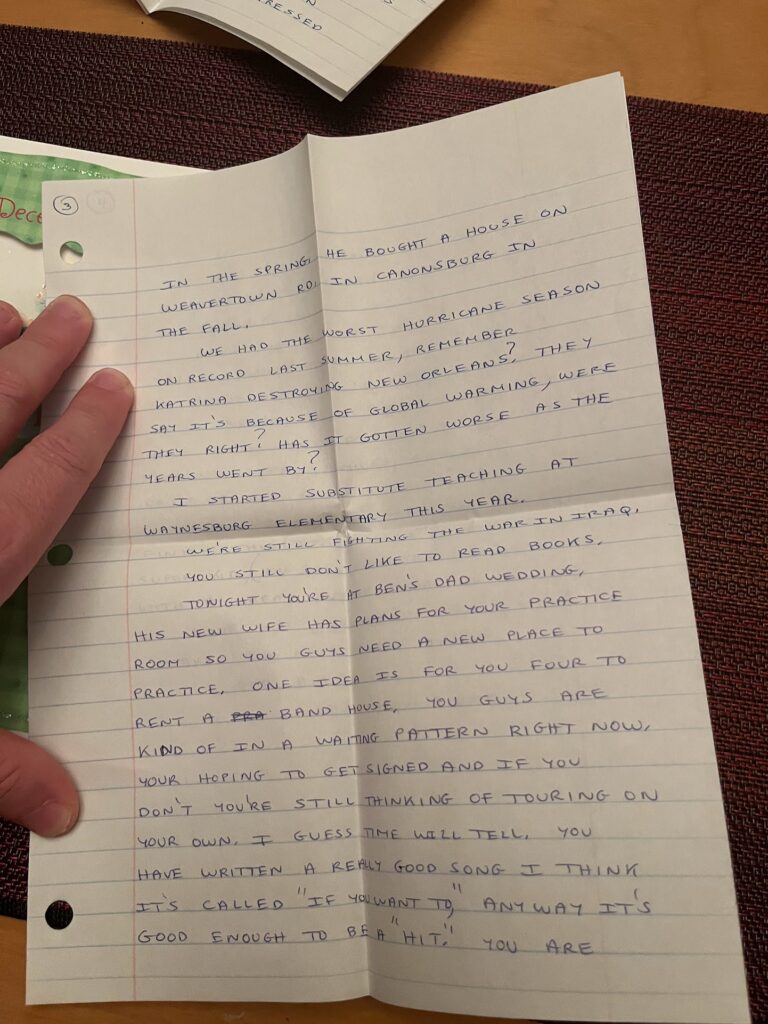 RESSED
Dece
3
IN THE SPRING, HE BOUGHT A HOUSE ON
WEAVERTOWN RD. IN CANONSBURG IN
THE FALL.
WE HAD THE WORST HURRICANE SEASON
ON RECORD LAST SUMMER, REMEMBER
KATRINA DESTROYING NEW ORLEANS? THEY
SAY IT'S BECAUSE OF GLOBAL WARMING, WERE
THEY RIGHT? HAS IT GOTTEN WORSE AS THE
YEARS WENT BY?
I STARTED SUBSTITUTE TEACHING AT
WAYNESBURG ELEMENTARY THIS YEAR.
WE'RE STILL FIGHTING THE WAR IN IRAQ.
YOU STILL DON'T LIKE TO READ BOOKS.
TONIGHT YOU'RE AT BEN'S DAD WEDDING,
HIS NEW WIFE HAS PLANS FOR YOUR PRACTICE
ROOM SO YOU GUYS NEED A NEW PLACE TO
PRACTICE. ONE IDEA IS FOR YOU FOUR TO
RENT A PRA BAND HOUSE. YOU GUYS ARE
KIND OF IN A WAITING PATTERN RIGHT NOW.
YOUR HOPING TO GET SIGNED AND IF YOU
DON'T YOU'RE STILL THINKING OF TOURING ON
YOUR OWN. I GUESS TIME WILL TELL. YOU
HAVE WRITTEN A REALLY GOOD SONG I THINK
IT'S CALLED "IF YOU WANT TO," ANYWAY IT'S
GOOD ENOUGH TO BE A "HIT." YOU ARE